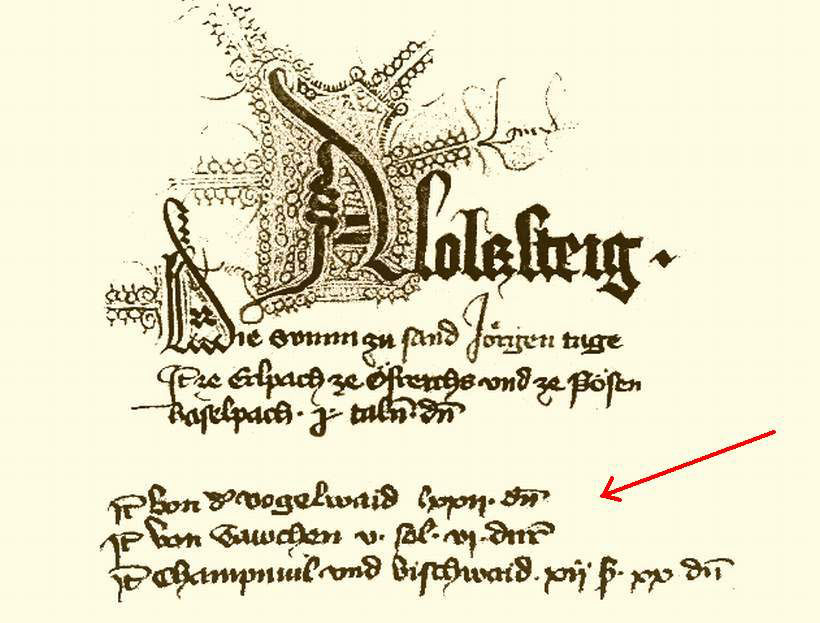 Alolczsteig ·
Die summ zu sand Jörgen tage
It ze Erlpach ze Östreichs vnd ze Pösen
haselpach · j · taln dn
It von d' vogelwaid lxxii · dn
It von Gawchen v · sol · vi · dn
It Champmül vnd vischwaid · xiij ß · xx dn